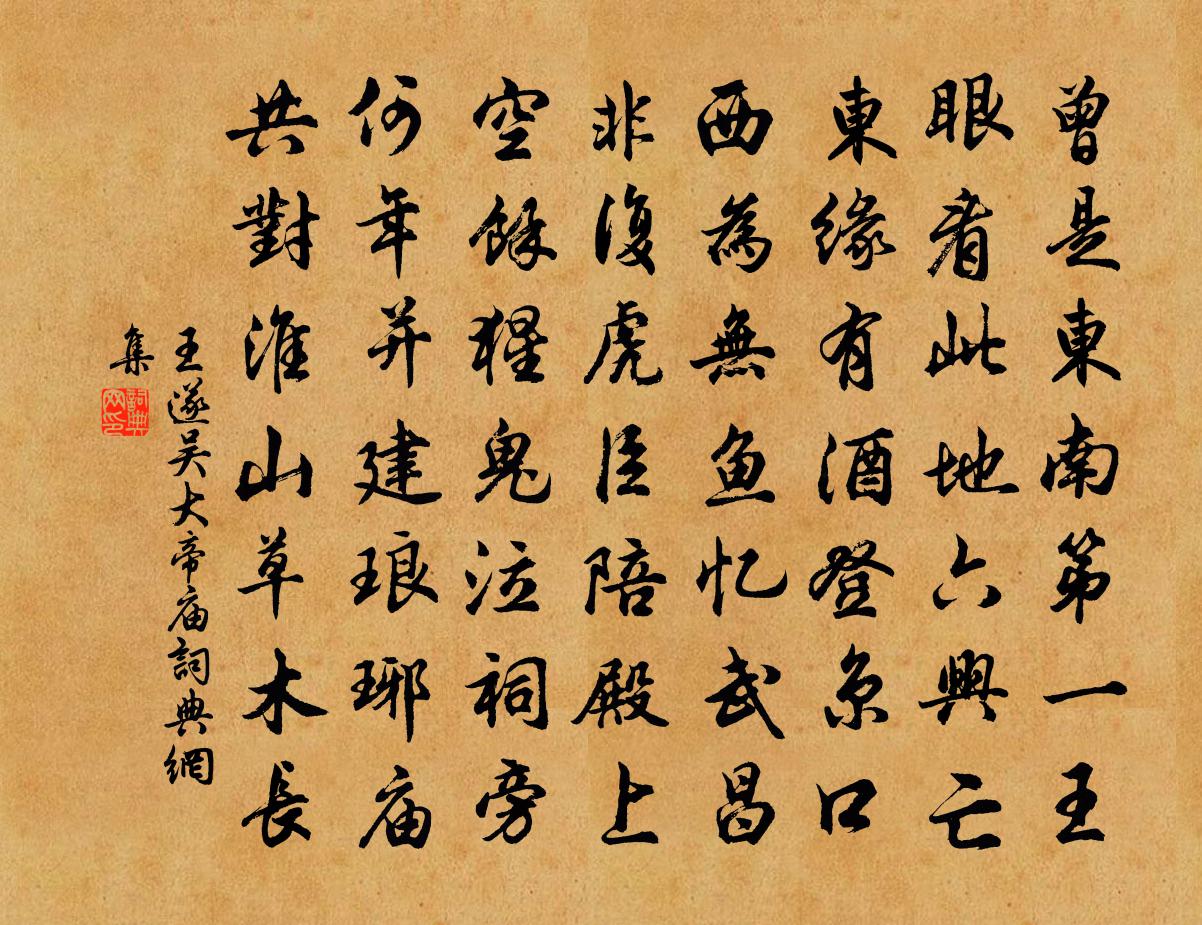 曾是東南第一王
眼看此地六興亡
東緣有酒登京口
西為無鱼忆武昌
非復虎臣陪殿上
空餘猩鬼泣祠旁
何年并建琅琊庙
共對淮山草木長
王遂吴大帝庙詞典網
集
詞典網印